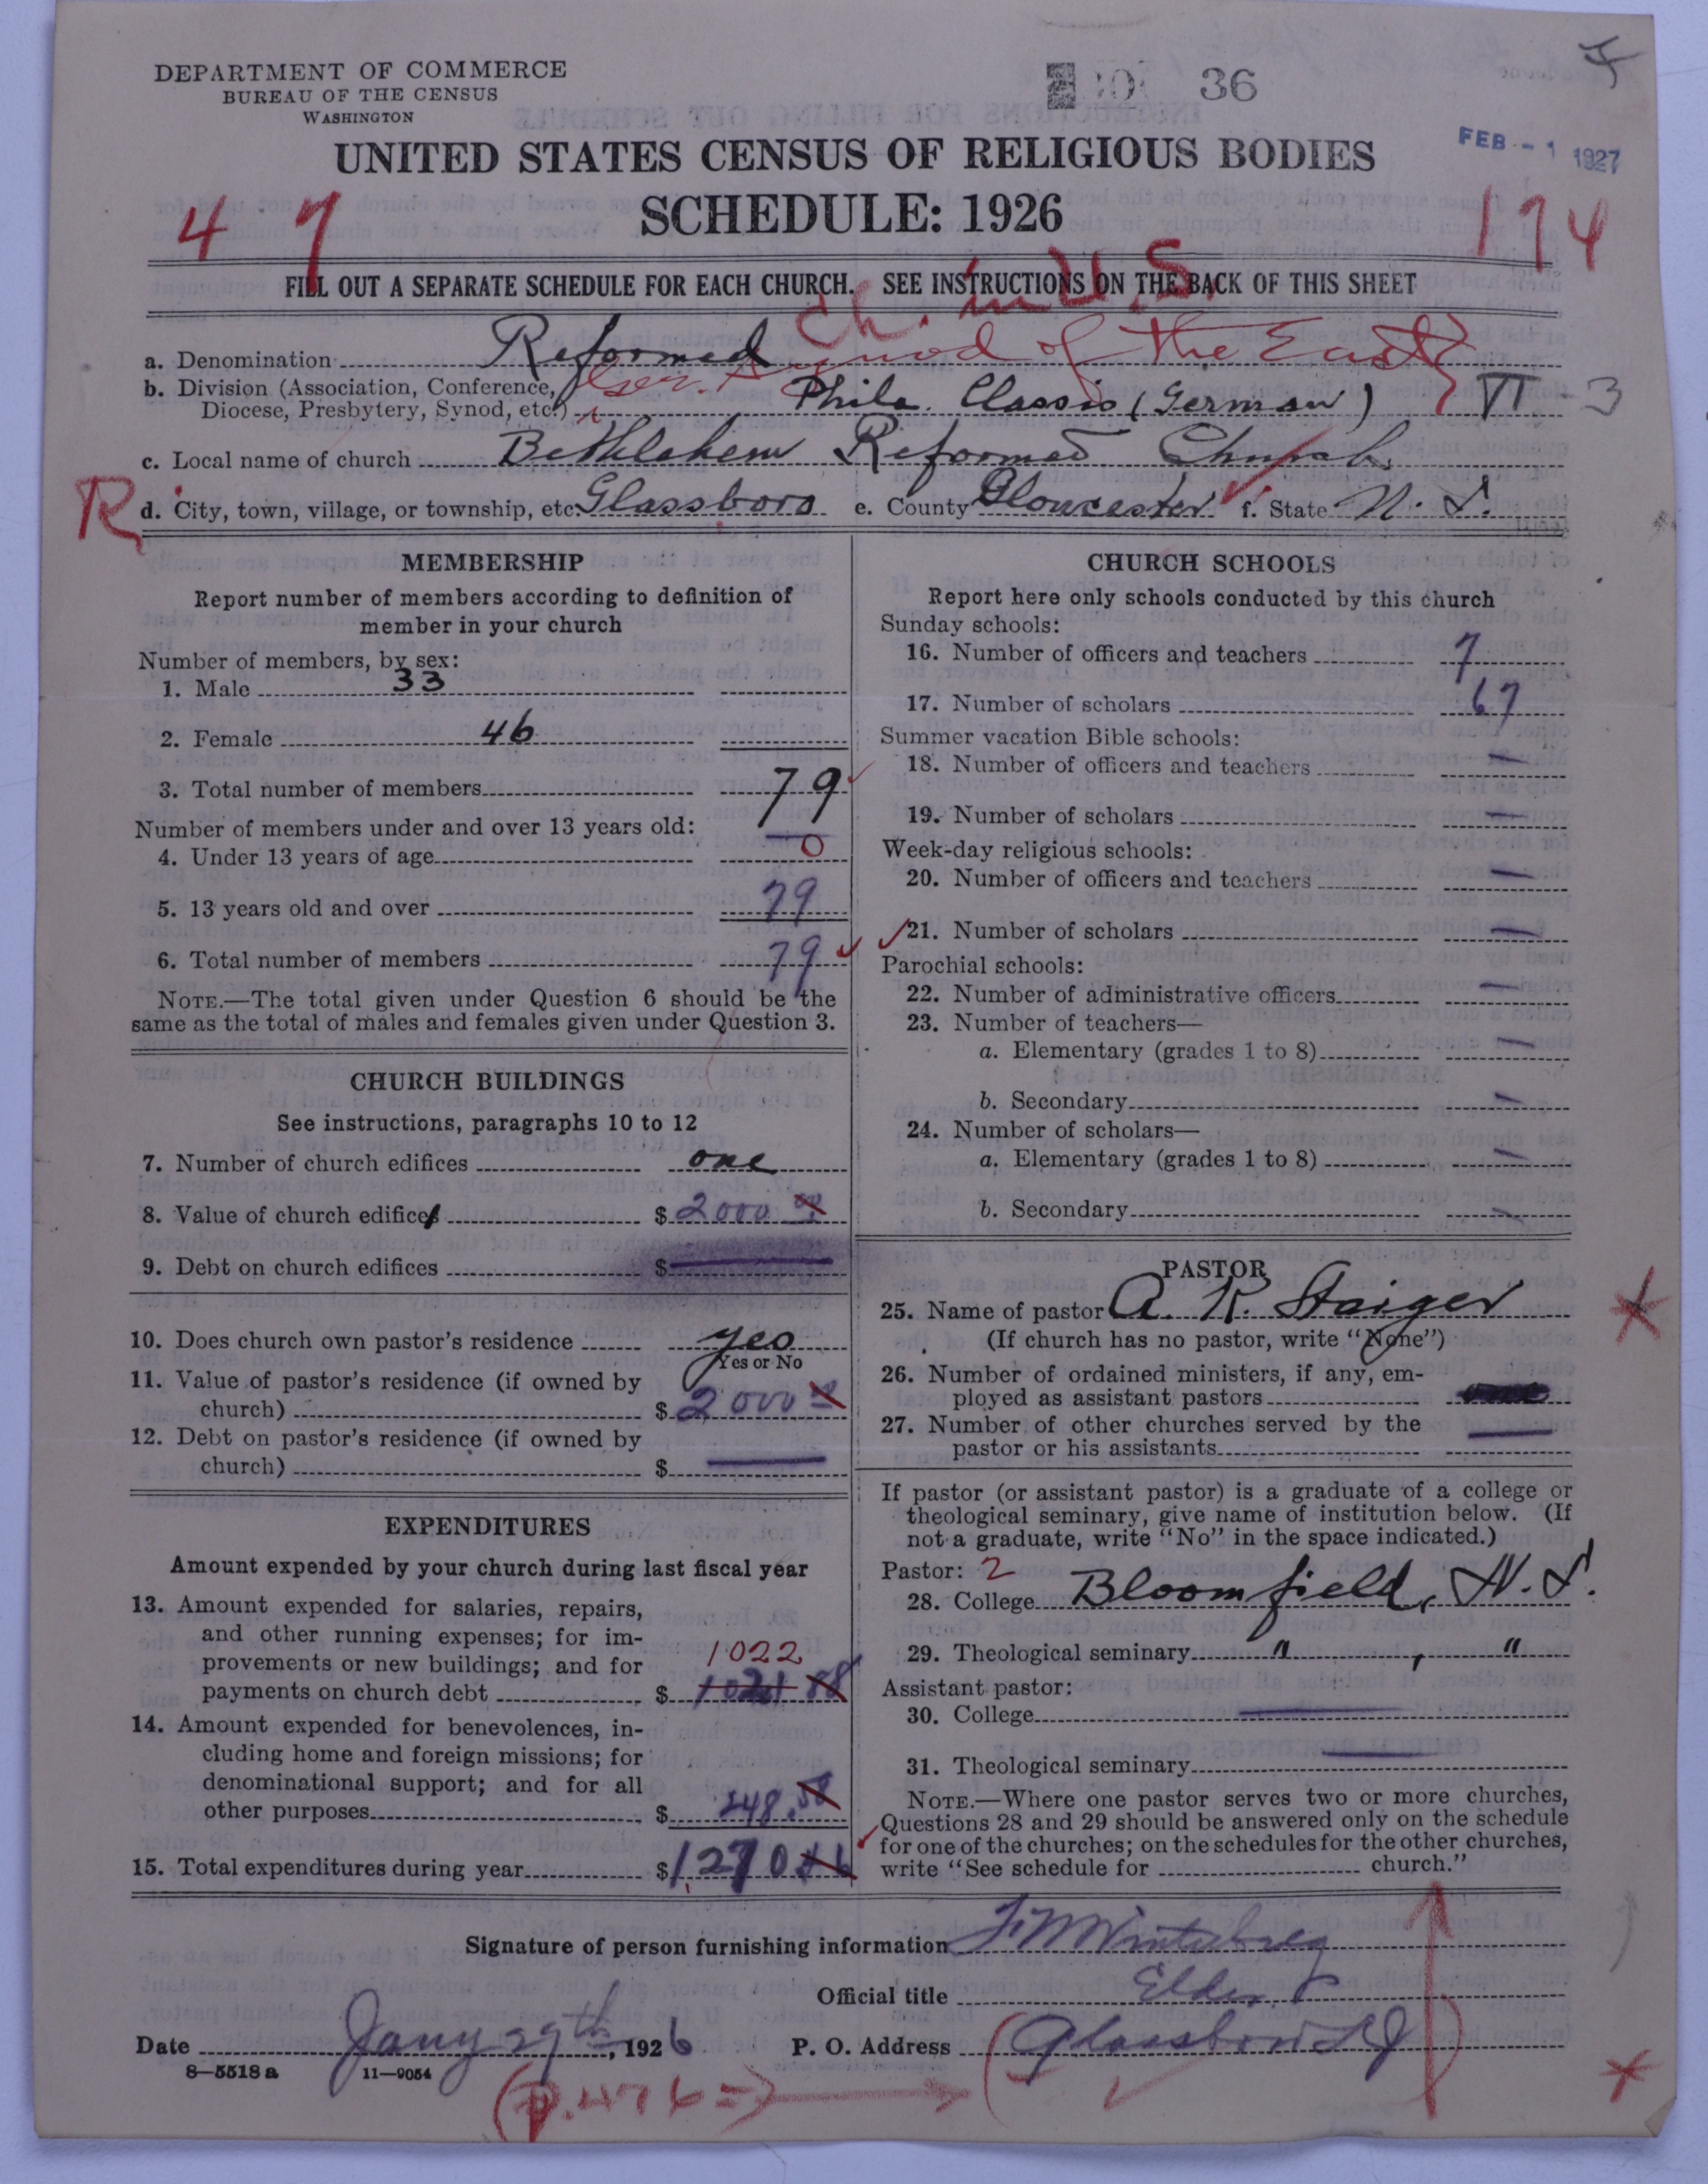 DEPARTMENT OF COMMERCE
BUREAU OF THE CENSUS
WASHINGTON
36
FEB - 1 1927
UNITED STATES CENSUS OF RELIGIOUS BODIES
SCHEDULE: 1926
4 7
174
FILL OUT A SEPARATE SCHEDULE FOR EACH CHURCH. SEE INSTRUCTIONS ON THE BACK OF THIS SHEET
Ch. in U.S.
a. Denomination Reformed
Ger. Synod of the East
b. Division (Association, Conference,
Diocese, Presbytery, Synod, etc.) Phila. Classis (German) VI 3
c. Local name of church Bethlehem Reformed Church
R d. City, town, village, or township, etc. Glassboro e. County Gloucester f. State N. J.
MEMBERSHIP
Report number of members according to definition of
member in your church
Number of members, by sex:
1. Male 33
2. Female 46
3. Total number of members 79
Number of members under and over 13 years old:
4. Under 13 years of age 0
5. 13 years old and over 79
6. Total number of members 79
NOTE.—The total given under Question 6 should be the
same as the total of males and females given under Question 3.
CHURCH BUILDINGS
See instructions, paragraphs 10 to 12
7. Number of church edifices one
8. Value of church edifices $ 2000 00
9. Debt on church edifices $ —
10. Does church own pastor's residence yes
Yes or No
11. Value of pastor's residence (if owned by
church) $ 2000 00
12. Debt on pastor's residence (if owned by
church) $ —
EXPENDITURES
Amount expended by your church during last fiscal year
13. Amount expended for salaries, repairs,
and other running expenses; for im-
provements or new buildings; and for
payments on church debt $ 1021 88
1022
14. Amount expended for benevolences, in-
cluding home and foreign missions; for
denominational support; and for all
other purposes $ 248.58
15. Total expenditures during year $ 1270 46
CHURCH SCHOOLS
Report here only schools conducted by this church
Sunday schools:
16. Number of officers and teachers 7
17. Number of scholars 67
Summer vacation Bible schools:
18. Number of officers and teachers —
19. Number of scholars —
Week-day religious schools:
20. Number of officers and teachers —
21. Number of scholars —
Parochial schools:
22. Number of administrative officers —
23. Number of teachers—
a. Elementary (grades 1 to 8) —
b. Secondary —
24. Number of scholars—
a. Elementary (grades 1 to 8) —
b. Secondary —
PASTOR
25. Name of pastor A. K. Staiger
(If church has no pastor, write "None")
26. Number of ordained ministers, if any, em-
ployed as assistant pastors
27. Number of other churches served by the
pastor or his assistants —
If pastor (or assistant pastor) is a graduate of a college or
theological seminary, give name of institution below. (If
not a graduate, write "No" in the space indicated.)
Pastor: 2
28. College Bloomfield, N. J.
29. Theological seminary " , "
Assistant pastor:
30. College —
31. Theological seminary —
NOTE.—Where one pastor serves two or more churches,
Questions 28 and 29 should be answered only on the schedule
for one of the churches; on the schedules for the other churches,
write "See schedule for church."
Signature of person furnishing information
Official title Elder
Date Jany 29th, 1926 P. O. Address Glassboro NJ
8—5518 a 11—9054